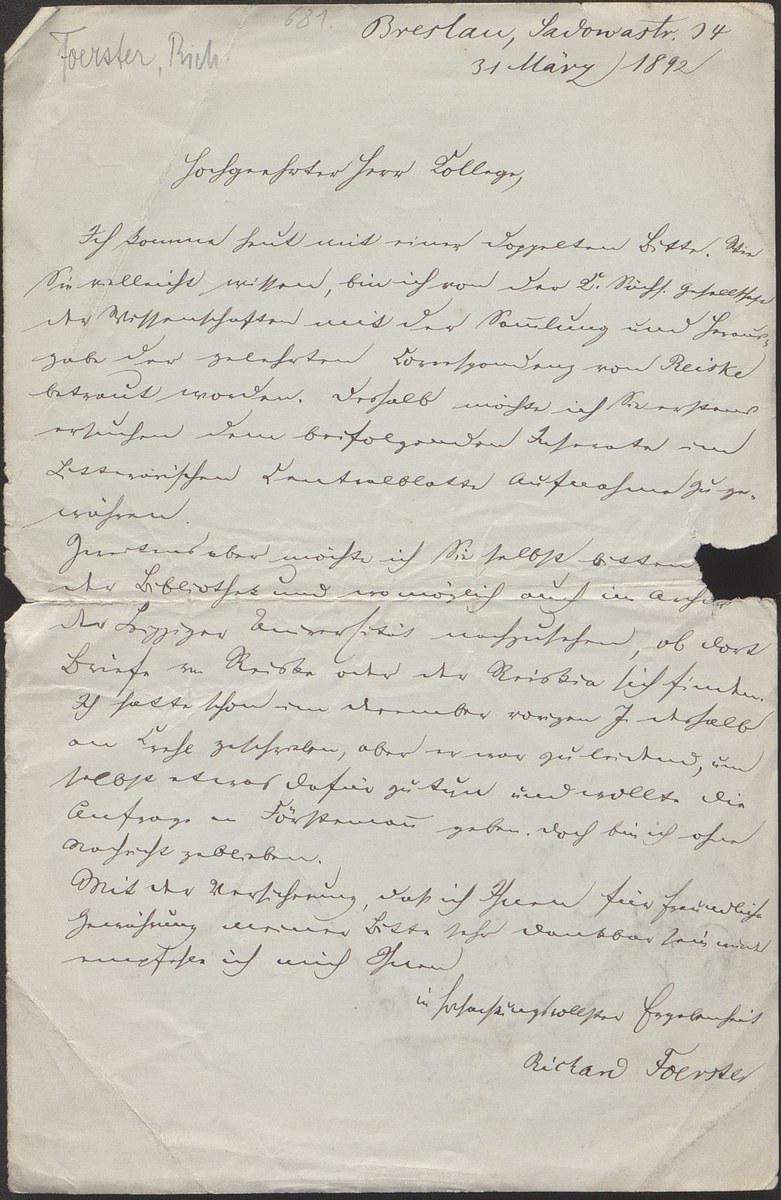 681.
Foerster, Rich.
Breslau, Sadowastr. 54
31 März 1892
Hochgeehrter Herr College,
Ich komme heut mit einer doppelten Bitte. Wie
Sie vielleicht wissen, bin ich von der K. Sächs. Gesellschaft
der Wissenschaften mit der Sammlung und Heraus-
gabe der gelehrten Correspondenz von Reiske
betraut worden. Deshalb möchte ich Sie erstens
ersuchen dem beifolgenden Inserate im
Litterarischen Centralblatte Aufnahme zu ge-
währen.
Zweitens aber möchte ich Sie selbst bitten
der Bibliothek und womöglich auch im
der Leipziger Universität nachzusehen, ob dort
Briefe von Reiske oder der Reiskia sich finden.
Ich hatte schon im December vorigen J. deshalb
an Krehl geschrieben, aber er war zu leidend, um
selbst etwas dafür zu tun und wollte die
Anfrage an Förstemann geben. Doch bin ich ohne
Nachricht geblieben.
Mit der Versicherung, daß ich Ihnen für freundliche
Gewährung meiner Bitte sehr dankbar sein würde
empfehle ich mich Ihnen
in hochachtungsvollster Ergebenheit
Richard Foerster